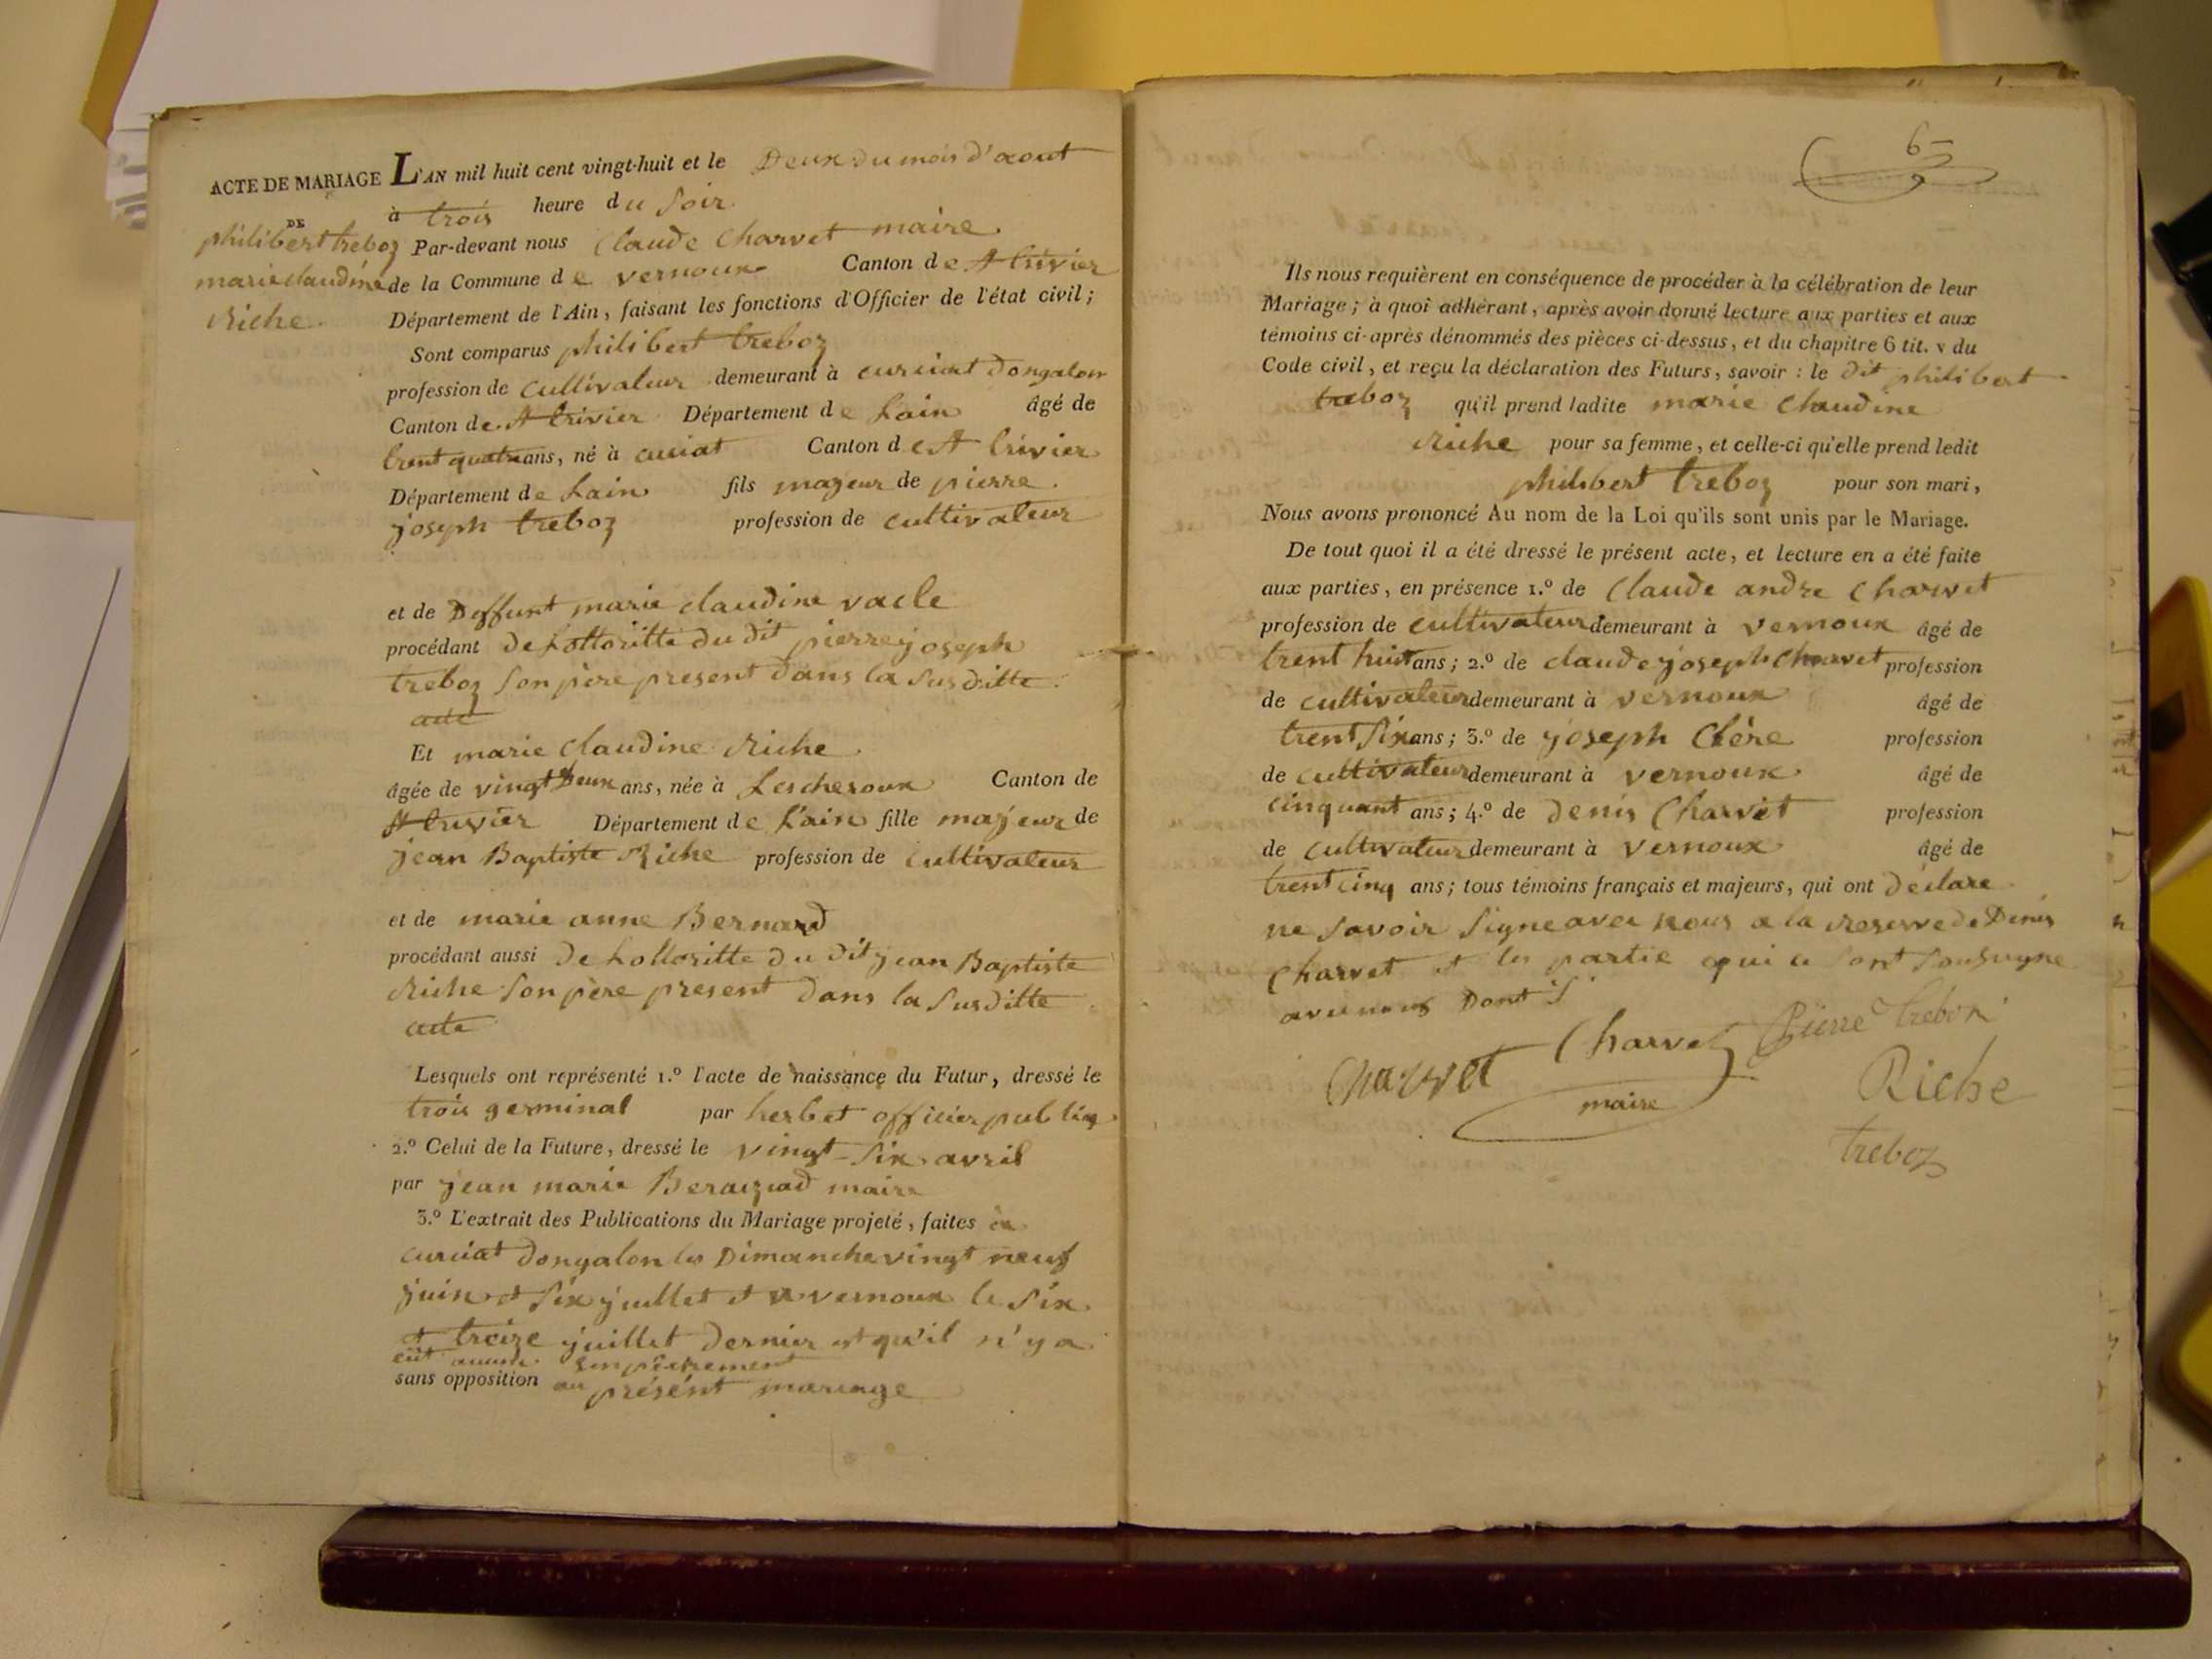 ACTE DE MARIAGE
DE
philibert treboz
marie claudine
Riche
L'AN mil huit cent vingt-huit et le Deux du mois d'aout
à trois heure du soir
Par-devant nous Claude Charvet maire
de la Commune de vernoux Canton de St trivier
Département de l'Ain, faisant les fonctions d'Officier de l'état civil;
Sont comparus philibert treboz
profession de cultivateur demeurant à curciat dongalon
Canton de St trivier Département de Lain âgé de
trent quatre ans, né à curciat Canton de St trivier
Département de Lain fils majeur de pierre
joseph treboz profession de cultivateur
et de Deffunt marie claudine vacle
procédant de Lottoritte du dit pierre joseph
treboz son père present dans la susditte
acte
Et marie claudine Riche
âgée de vingt Deux ans, née à Lescheroux Canton de
St trivier Département de Lain fille majeur de
jean Baptiste Riche profession de cultivateur
et de marie anne Bernard
procédant aussi de Lottoritte du dit jean Baptiste
Riche son père present dans la susditte
acte
Lesquels ont représenté 1.º l'acte de naissance du Futur, dressé le
trois germinal par herbet officier publiq
2.º Celui de la Future, dressé le vingt-six avril
par jean marie maire
3.º L'extrait des Publications du Mariage projeté, faites à
curciat dongalon les Dimanche vingt neuf
juin et six juillet et a vernoux le six
et treize juillet dernier et qu'il n'y a
eüt aucune empêchement
sans opposition au présent mariage
6
Ils nous requièrent en conséquence de procéder à la célébration de leur
Mariage; à quoi adhérant, après avoir donné lecture aux parties et aux
témoins ci-après dénommés des pièces ci-dessus, et du chapitre 6 tit. v du
Code civil, et reçu la déclaration des Futurs, savoir: le dit philibert
treboz qu'il prend ladite marie Claudine
Riche pour sa femme, et celle-ci qu'elle prend ledit
philibert treboz pour son mari,
Nous avons prononcé Au nom de la Loi qu'ils sont unis par le Mariage.
De tout quoi il a été dressé le présent acte, et lecture en a été faite
aux parties, en présence 1.º de Claude andre Charvet
profession de cultivateur demeurant à vernoux âgé de
trent huit ans; 2.º de claude joseph Charvet profession
de cultivateur demeurant à vernoux âgé de
trent six ans; 3.º de joseph Clère profession
de cultivateur demeurant à vernoux âgé de
cinquant ans; 4.º de Denis Charvet profession
de cultivateur demeurant à vernoux âgé de
trent cinq ans; tous témoins français et majeurs, qui ont déclare
ne savoir signe avec nous a la reserve de Denis
Charvet et les partie qui ce sont sousigne
avec nous Dont
Charvet Charvet Pierre treboz
maire Riche
treboz